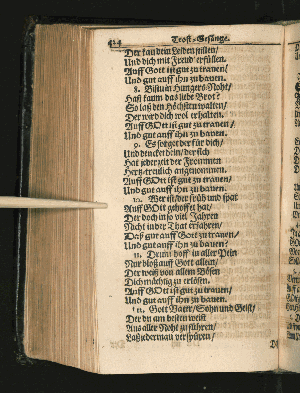 424 Trost-Gesänge.
Der kan dein Leiden stillen/
Und dich mit Freud' erfüllen.
Auff Gott ist gut zu trauen/
Und gut auff ihn zu bauen.
8. Bistu in Hungers-Noht/
Hast kaum das liebe Brot?
So laß den Höchsten walten/
Der wird dich wol erhalten.
Auff GOtt ist gut zu trauen/
Und gut auff ihn zu bauen.
9. Es sorget der für dich/
Und decket dein/ der sich
Hat jederzeit der Frommen
Hertz-treulich angenommen.
Auff GOtt ist gut zu trauen/
Und gut auff ihn zu bauen.
10. Wer ist/ der früh und spat
Auff GOtt gehoffet hat/
Der doch in so viel Jahren
Nicht in der That erfahren/
Daß gut auff Gott zu trauen/
Und gut auff ihn zu bauen?
11. Drum hoff' in aller Pein
Nur bloß auff Gott allein/
Der weiß von allem Bösen
Dich mächtig zu erlösen.
Auff GOtt ist gut zu trauen/
Und gut auff ihn zu bauen.
12. Gott Vater/ Sohn und Geist/
Der du am besten weist
Aus aller Noht zu führen/
Laß jederman verspüren/